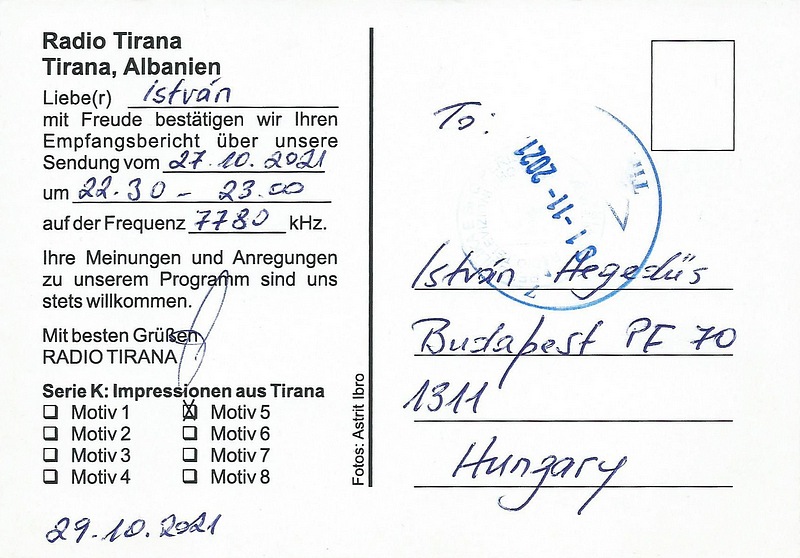 Radio Tirana
Tirana, Albanien
Liebe(r) István
mit Freude bestätigen wir Ihren
Empfangsbericht über unsere
Sendung vom 27.10.2021
um 22.30 - 23.00
auf der Frequenz 7780 kHz.
Ihre Meinungen und Anregungen
zu unserem Programm sind uns
stets willkommen.
Mit besten Grüßen
RADIO TIRANA
Serie K: Impressionen aus Tirana
Motiv 1
Motiv 2
Motiv 3
Motiv 4
Motiv 5
Motiv 6
Motiv 7
Motiv 8
29.10.2021
Fotos: Astrit Ibro
To:
-11-2021
István Hegedüs
Budapest PF 70
1311
Hungary